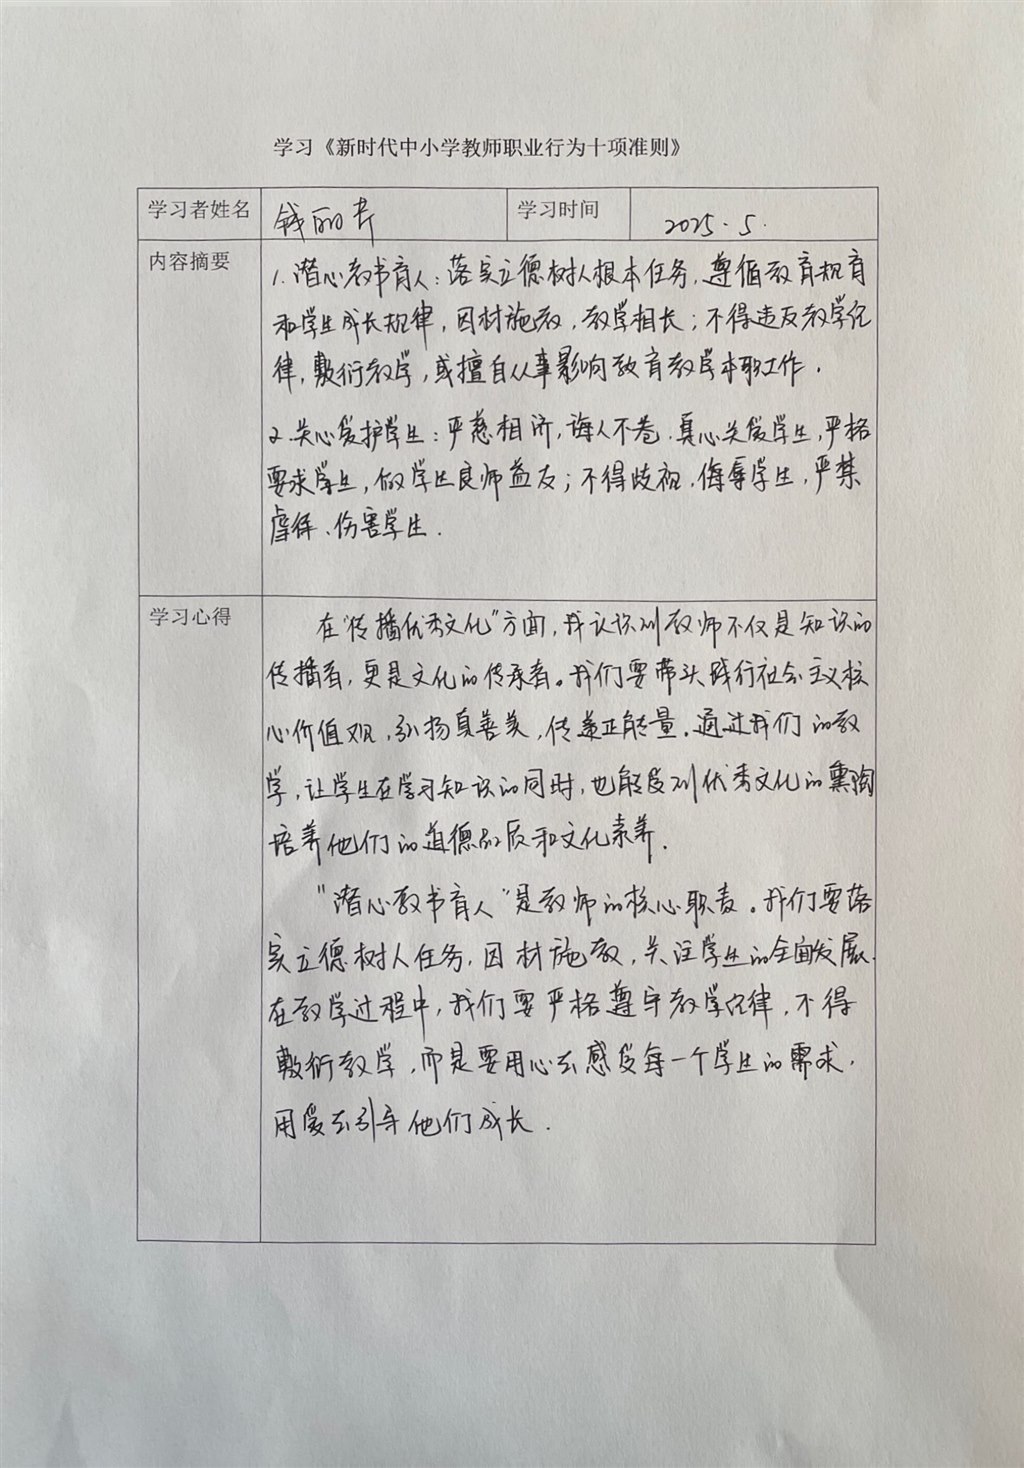 学习《新时代中小学教师职业行为十项准则》
学习者姓名 钱丽芹 学习时间 2025.5.
内容摘要
1.潜心教书育人：落实立德树人根本任务，遵循教育规育
和学生成长规律，因材施教，教学相长；不得违反教学纪
律，敷衍教学，或擅自从事影响教育教学本职工作.
2.关心爱护学生：严慈相济，诲人不卷.真心关爱学生，严格
要求学生，做学生良师益友；不得歧视、侮辱学生，严禁
虐待、伤害学生.
学习心得
在“传播优秀文化”方面，我认识到教师不仅是知识的
传播者，更是文化的传承者。我们要带头践行社会主义核
心价值观，弘扬真善美，传递正能量。通过我们的教
学，让学生在学习知识的同时，也能受到优秀文化的熏陶
培养他们的道德品质和文化素养.
“潜心教书育人”是教师的核心职责。我们要落
实立德树人任务，因材施教，关注学生的全面发展.
在教学过程中，我们要严格遵守教学纪律，不得
敷衍教学，而是要用心去感受每一个学生的需求.
用爱去引导他们成长.